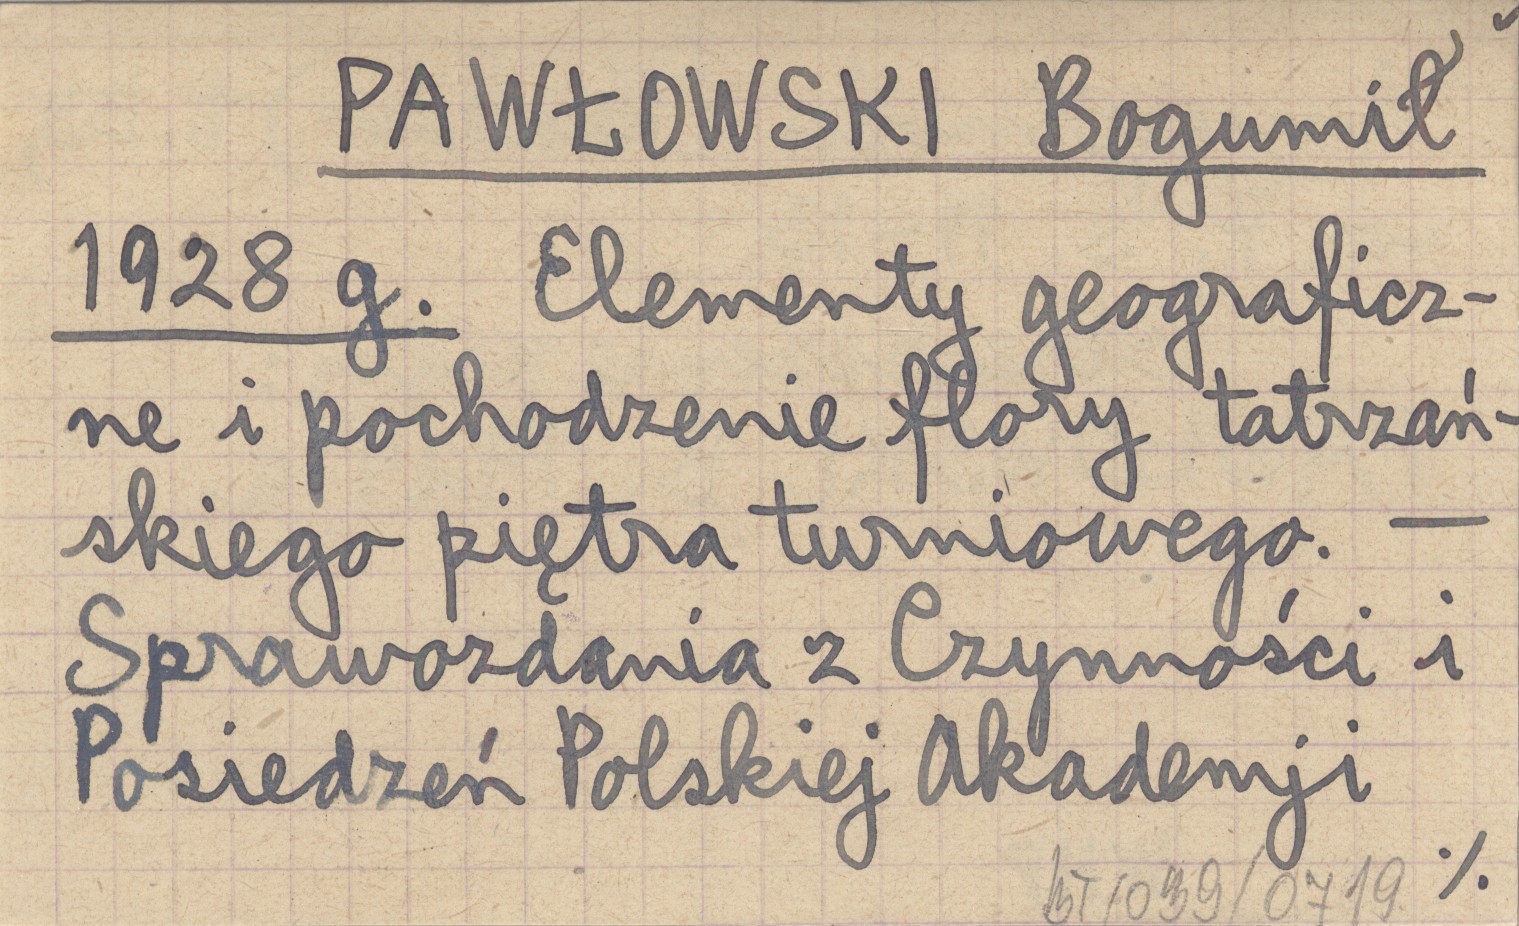 PAWŁOWSKI Bogumił
1928 g. Elementy geograficz-
ne i pochodzenie flory tatrzań-
skiego piętra turniowego. —
Sprawozdania z Czynności i
Posiedzeń Polskiej Akademji
./.
BT/039/0719